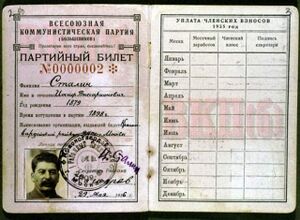 ВСЕСОЮЗНАЯ
КОММУНИСТИЧЕСКАЯ ПАРТИЯ
(БОЛЬШЕВИКОВ)
Пролетарии всех стран, соединяйтесь!
ПАРТИЙНЫЙ БИЛЕТ
№0000002
Фамилия Сталин
Имя и отчество Иосиф Виссарионович
Год рождения 1879
Время вступления в партию 1898 г.
Наименование организации, выдавшей билет
3
УПЛАТА ЧЛЕНСКИХ ВЗНОСОВ
Месяц Месячный заработок Членский взнос Подпись секретаря
Январь
Февраль
Март
Апрель
Май
Июнь
Июль
Август
Сентябрь
Октябрь
Ноябрь
Декабрь